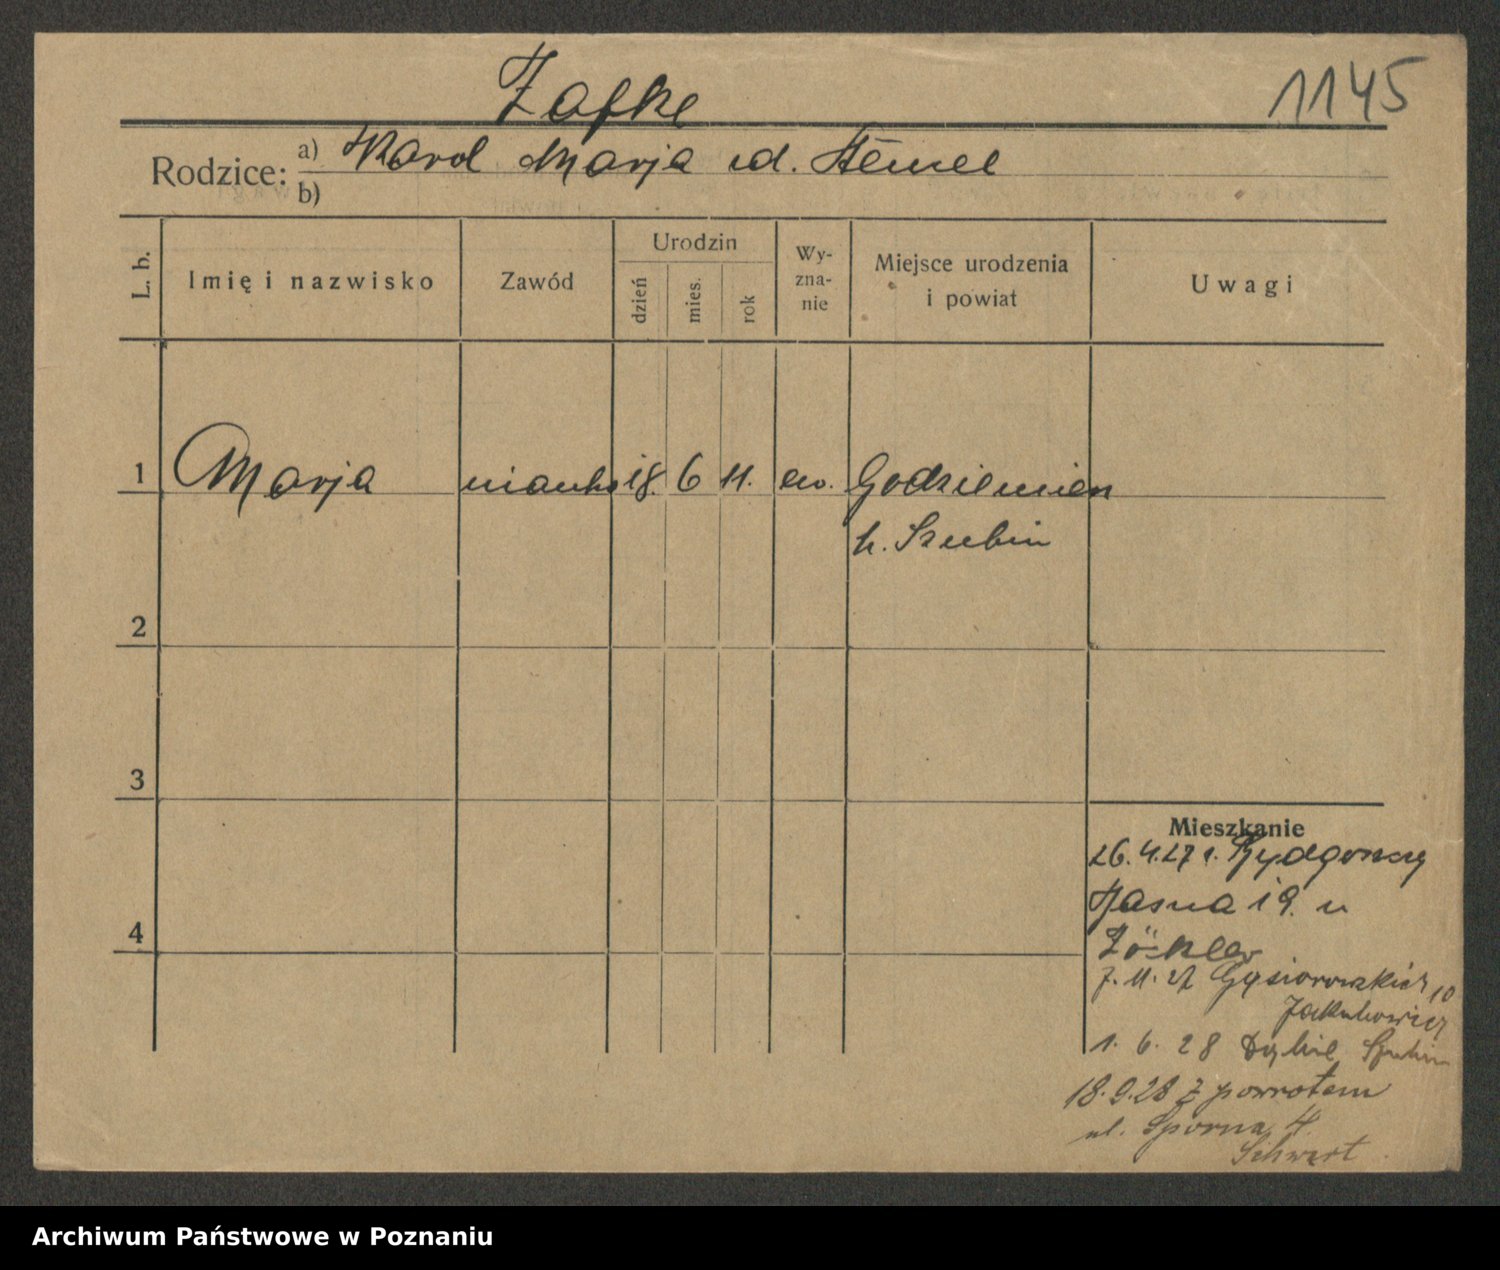 Zafke
1145
Rodzice: a) Karol Marja
b)
L. b.
Imię i nazwisko
Zawód
Urodzin
dzień
mies.
rok
Wy-
zna-
nie
Miejsce urodzenia
i powiat
Uwagi
1 Marja nianka 18. 6 11. ew. Godziemien
Szubin
2
3
4
Mieszkanie
26.4.27 r. Bydgoszcz
Jasna 19. u
Zökler
7. 11. 27 Gąsiorowskich 10
Jakubowicz
1. 6. 28
18.9.28 z powrotem
ul. Sporna 4.
Archiwum Państwowe w Poznaniu